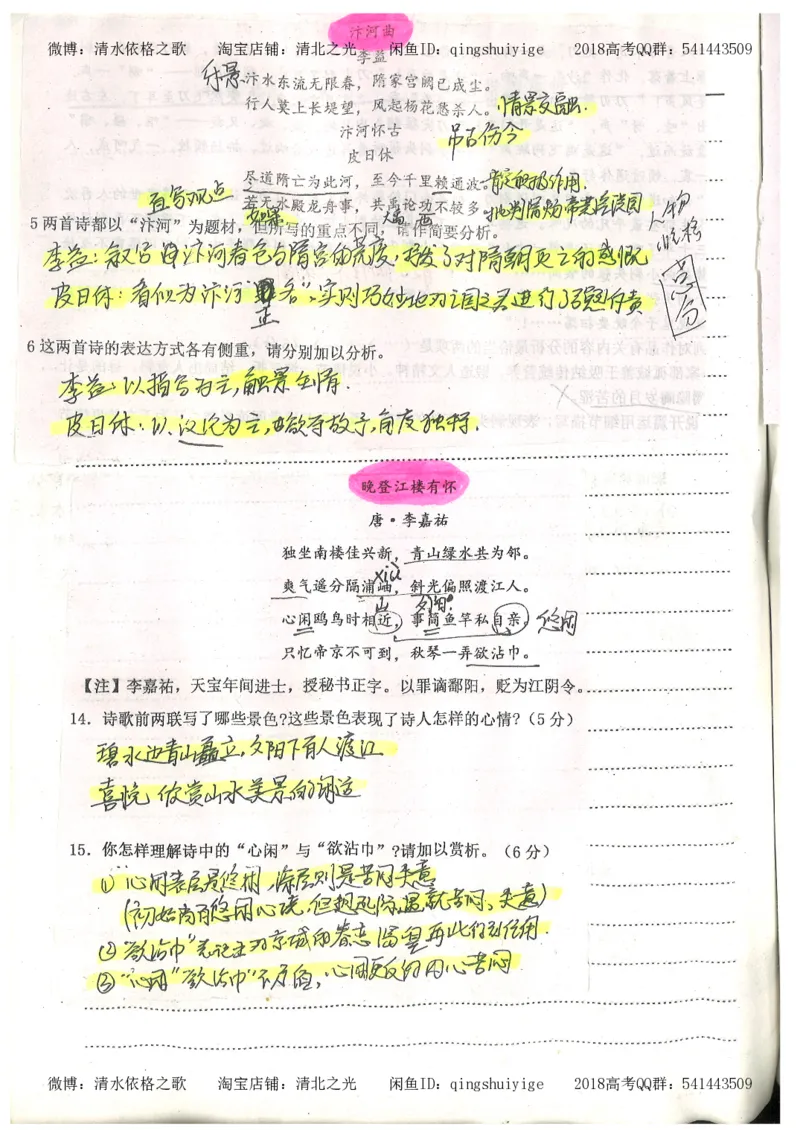 汴河曲
微博：清水依格之歌 淘宝店铺：清北之光 闲鱼ID：qingshuiyige 2018高考QQ群：541443509
李益
汴水东流无限春，隋家宫阙已成尘。
行人莫上长堤望，风起杨花愁杀人。情景交融.
汴河怀古 吊古伤今
皮日休
尽道隋亡为此河，至今千里赖通波。
直写观点
若无水殿龙舟事，共禹论功不较多。
5 两首诗都以“汴河”为题材，但所写的重点不同，请作简要分析。
李益：
皮日休：看似为汴河正名，实则巧妙地对
总分
6 这两首诗的表达方式各有侧重，请分别加以分析。
李益：以描写为主，融景生情.
皮日休：以议论为主，角度独特.
晚登江楼有怀
唐·李嘉祐
独坐南楼佳兴新，青山绿水共为邻。
xiù
爽气遥分隔浦岫，斜光偏照渡江人。
山 夕阳
心闲鸥鸟时相近，事简鱼竿私自亲，悠闲
只忆帝京不可到，秋琴一弄欲沾巾。
【注】李嘉祐，天宝年间进士，授秘书正字。以罪谪鄱阳，贬为江阴令。
14. 诗歌前两联写了哪些景色?这些景色表现了诗人怎样的心情?(5 分)
碧水边青山矗立，夕阳下有人渡江
喜悦 欣赏山水美景的闲适
15. 你怎样理解诗中的“心闲”与“欲沾巾”?请加以赏析。(6 分)
①“心闲表层是悠闲，深层则是苦闷失意
②“欲沾巾”
③“心闲”“欲沾巾”
微博：清水依格之歌 淘宝店铺：清北之光 闲鱼ID：qingshuiyige 2018高考QQ群：541443509